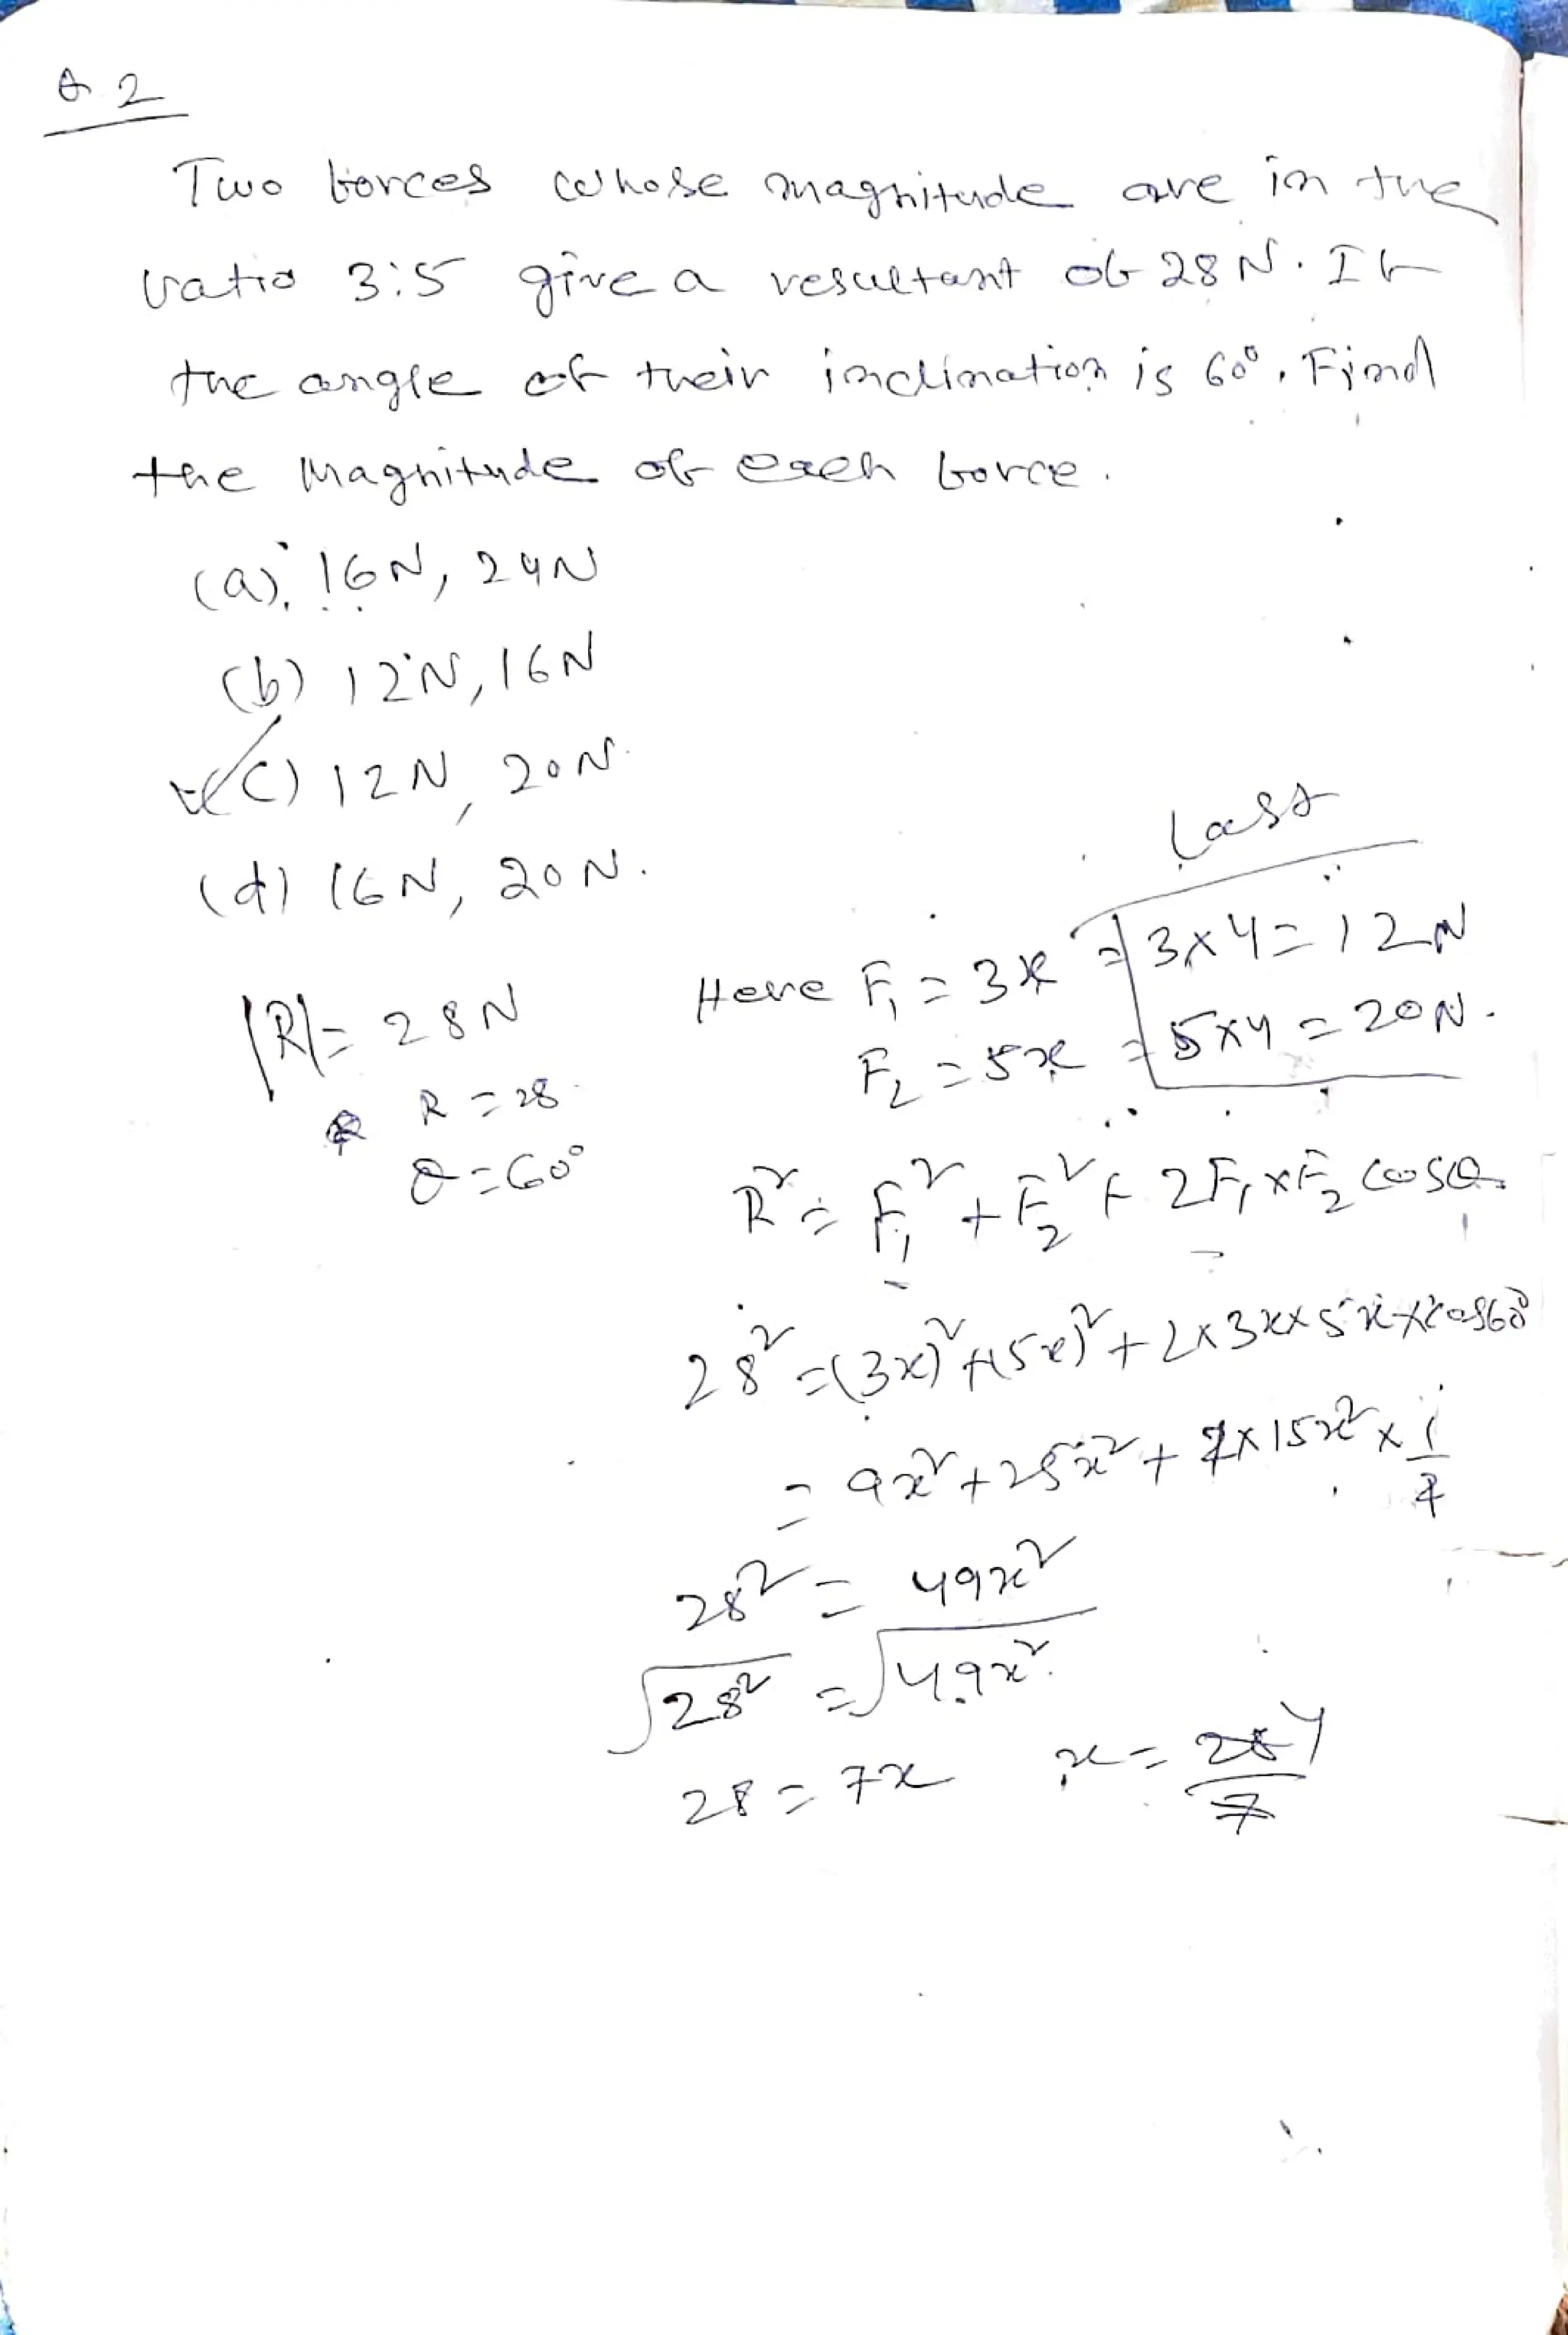 Q. 2
Two forces whose magnitude are in the
ratio 3:5 give a resultant of 28 N. If
the angle of their inclination is 60°. Find
the magnitude of each force.
(a) 16N, 24N
(b) 12N, 16N
(c) 12N, 20N
(d) 16N, 20N.
Last
Here F₁ = 3x = 3×4 = 12N
F₂ = 5x = 5×4 = 20N.
|R| = 28N
R = 28
θ = 60°
R² = F₁² + F₂² + 2F₁×F₂ cosθ
28² = (3x)² + (5x)² + 2×3x×5x×cos60°
= 9x² + 25x² + 2×15x² × 1/2
28² = 49x²
√28² = √49x²
28 = 7x x = 28/7 4